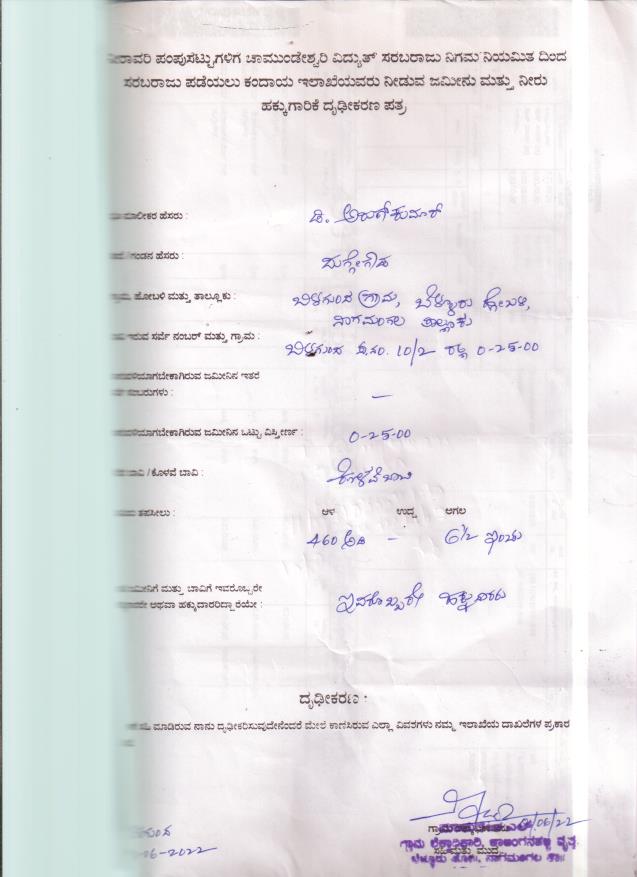 ನೀರಾವರಿ ಪಂಪುಸೆಟ್ಟುಗಳಿಗೆ ಚಾಮುಂಡೇಶ್ವರಿ ವಿದ್ಯುತ್ ಸರಬರಾಜು ನಿಗಮ ನಿಯಮಿತ ದಿಂದ
ಸರಬರಾಜು ಪಡೆಯಲು ಕಂದಾಯ ಇಲಾಖೆಯವರು ನೀಡುವ ಜಮೀನು ಮತ್ತು ನೀರು
ಹಕ್ಕುಗಾರಿಕೆ ದೃಢೀಕರಣ ಪತ್ರ
ಮಾಲೀಕರ ಹೆಸರು : ಡಿ. ಅರುಣ್‌ಕುಮಾರ್
ಗಂಡನ ಹೆಸರು :
ಗ್ರಾಮ, ಹೋಬಳಿ ಮತ್ತು ತಾಲ್ಲೂಕು : ಬಿಳಗುಂದ ಗ್ರಾಮ, ಬೆಳ್ಳೂರು ಹೋಬಳಿ,
ನಾಗಮಂಗಲ ತಾಲ್ಲೂಕು
ಇರುವ ಸರ್ವೆ ನಂಬರ್ ಮತ್ತು ಗ್ರಾಮ : ಬಿಳಗುಂದ ಸ.ನಂ. 10/2 0-25-00
ಜಮೀನಿನ ಇತರೆ
—
ಜಮೀನಿನ ಒಟ್ಟು ವಿಸ್ತೀರ್ಣ : 0-25-00
ಬಾವಿ / ಕೊಳವೆ ಬಾವಿ : ಕೊಳವೆ ಬಾವಿ
ತಪಸೀಲು : ಆಳ ಉದ್ದ ಅಗಲ
460 ಅಡಿ – 6½ ಇಂಚು
ಜಮೀನಿಗೆ ಮತ್ತು ಬಾವಿಗೆ ಇವರೊಬ್ಬರೇ
ಅಥವಾ ಹಕ್ಕುದಾರರಿದ್ದಾರೆಯೇ : ಇವರೊಬ್ಬರೇ ಹಕ್ಕುದಾರರು
ದೃಢೀಕರಣ :
ಸಹಿ ಮಾಡಿರುವ ನಾನು ದೃಢೀಕರಿಸುವುದೇನೆಂದರೆ ಮೇಲೆ ಕಾಣಿಸಿರುವ ಎಲ್ಲಾ ವಿವರಗಳು ನಮ್ಮ ಇಲಾಖೆಯ ದಾಖಲೆಗಳ ಪ್ರಕಾರ
06/22
-06-2022
ಗ್ರಾಮ ಲೆಕ್ಕಾಧಿಕಾರಿ, ವೃತ್ತ
ಸಹಿ ಮತ್ತು ಮುದ್ರೆ
ಬೆಳ್ಳೂರು ಹೋ||, ನಾಗಮಂಗಲ ತಾ||